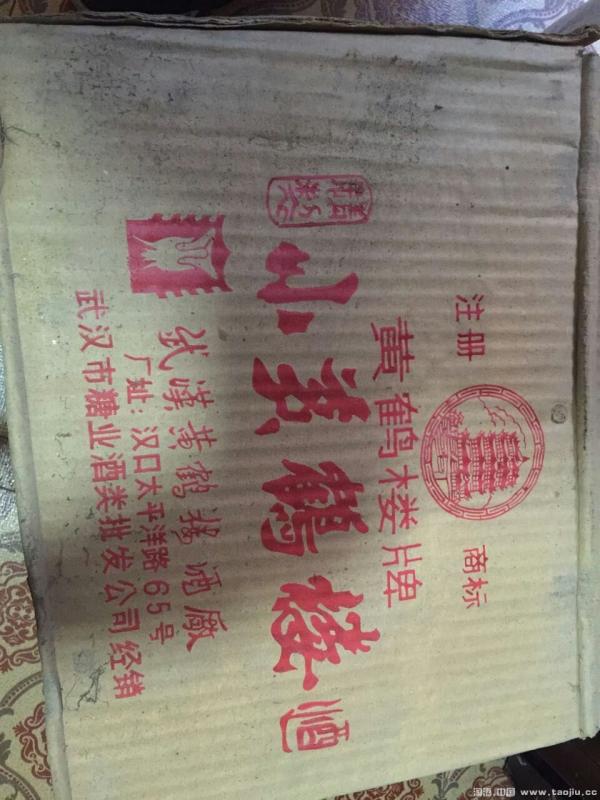 注册 商标
黄鹤楼牌
小黄鶴楼酒
武漢黄鶴楼酒廠
厂址:汉口太平洋路65号
武汉市糖业酒类批发公司经销
淘酒.中国 www.taojiu.cc